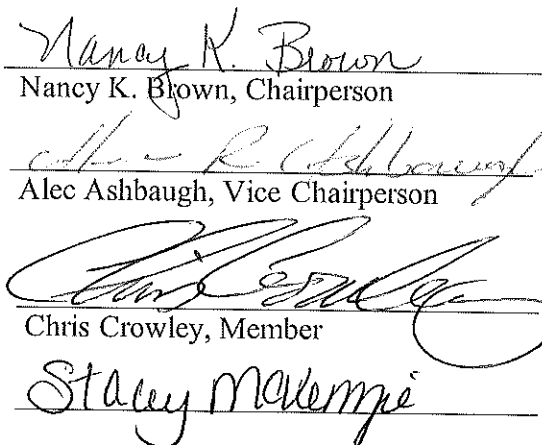 Nancy K. Brown
Nancy K. Brown, Chairperson
R. Ashbaugh
Alec Ashbaugh, Vice Chairperson
Chris Crowley
Chris Crowley, Member
Stacey McKenzie